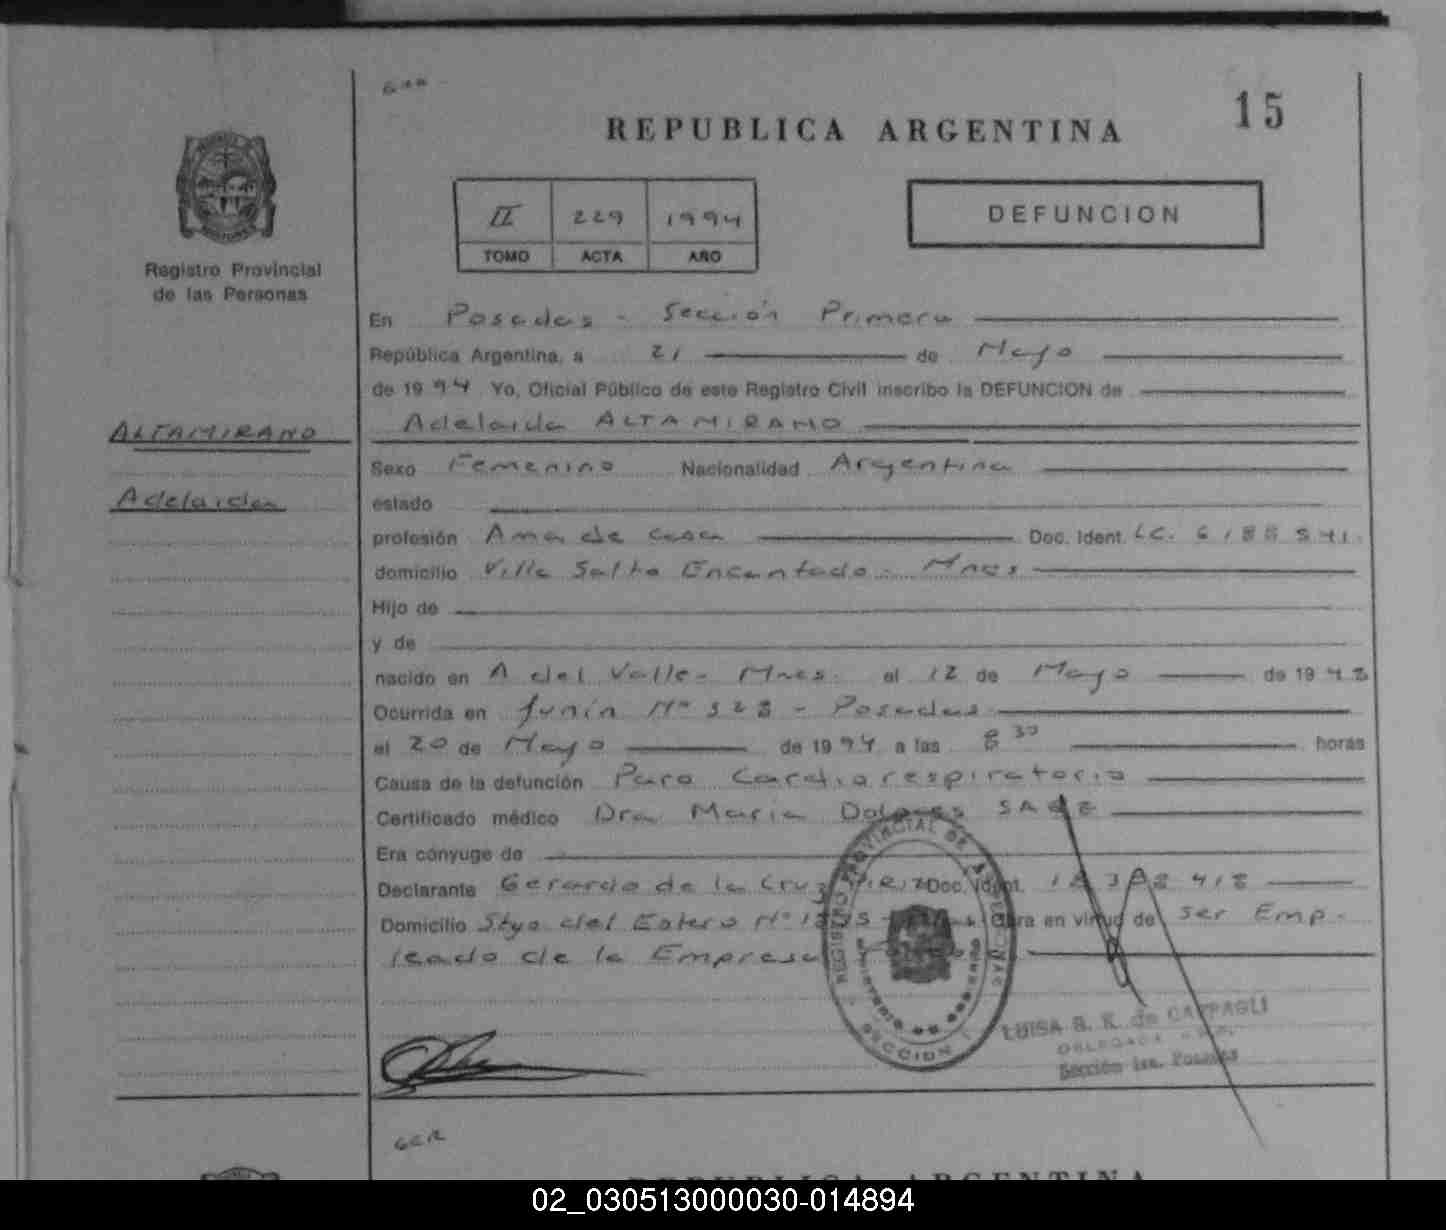 GRR
15
REPUBLICA ARGENTINA
II 229 1994
TOMO ACTA AÑO
DEFUNCION
Registro Provincial
de las Personas
En Posadas - Sección Primera
República Argentina, a 21 de Mayo
de 1994 Yo, Oficial Público de este Registro Civil inscribo la DEFUNCION de
Adelaida ALTAMIRANO
ALTAMIRANO
Adelaida
Sexo Femenino Nacionalidad Argentina
estado
profesión Ama de casa Doc. Ident. LC. 6188541.
domicilio Villa Salto Encantado - Mnes
Hijo de
y de
nacido en A del Valle - Mnes. el 12 de Mayo de 1948
Ocurrida en Junín Nº 328 - Posadas
el 20 de Mayo de 1994 a las 8 30 horas
Causa de la defunción Paro Cardiorespiratorio
Certificado médico Dra María Dolores
Era cónyuge de
Declarante Gerardo de la Cruz Doc. Ident.
Domicilio Stgo del Estero Nº Obra en virtud de ser Emp-
leado de la Empresa
REGISTRO PROVINCIAL DE LAS PERSONAS
MINISTERIO DE GOBIERNO
SECCION 1
LUISA B. K. de CAPPAGLI
DELEGADA
Sección 1ra. Posadas
GRR
REPUBLICA ARGENTINA
02_030513000030-014894